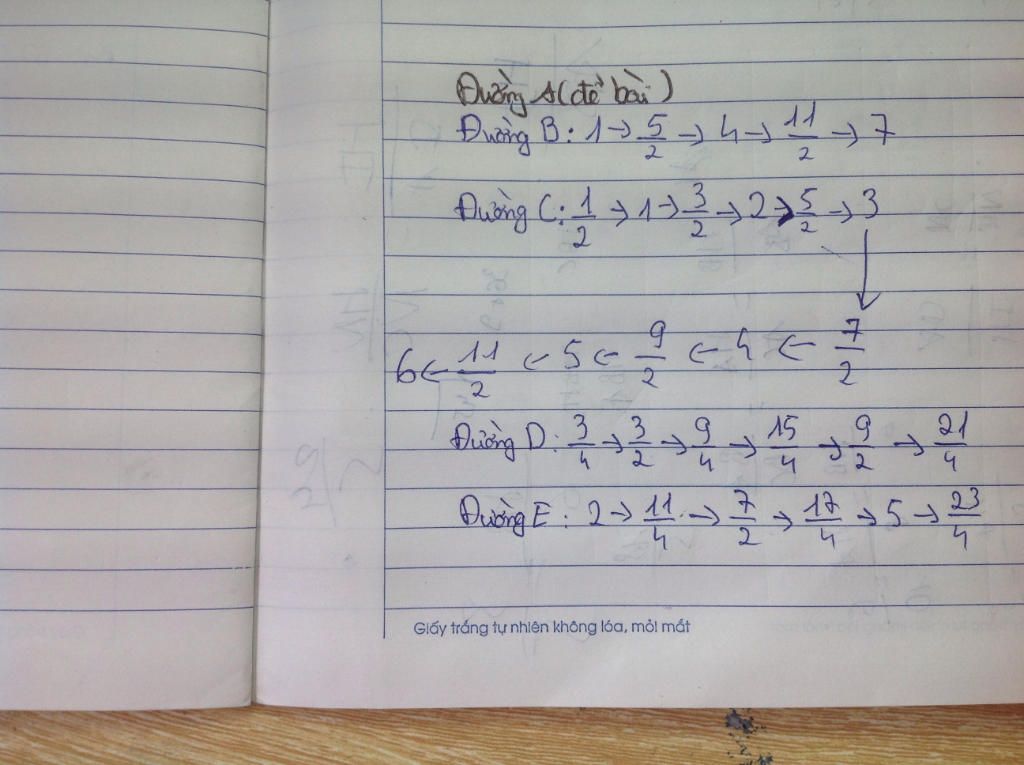 Đường A (đề bài)
Đường B: 1 → 5/2 → 4 → 11/2 → 7
Đường C: 1/2 → 1 → 3/2 → 2 → 5/2 → 3
↓
6 ← 11/2 ← 5 ← 9/2 ← 4 ← 7/2
Đường D: 3/4 → 3/2 → 9/4 → 15/4 → 9/2 → 21/4
Đường E: 2 → 11/4 → 7/2 → 17/4 → 5 → 23/4
Giấy trắng tự nhiên không lóa, mỏi mắt